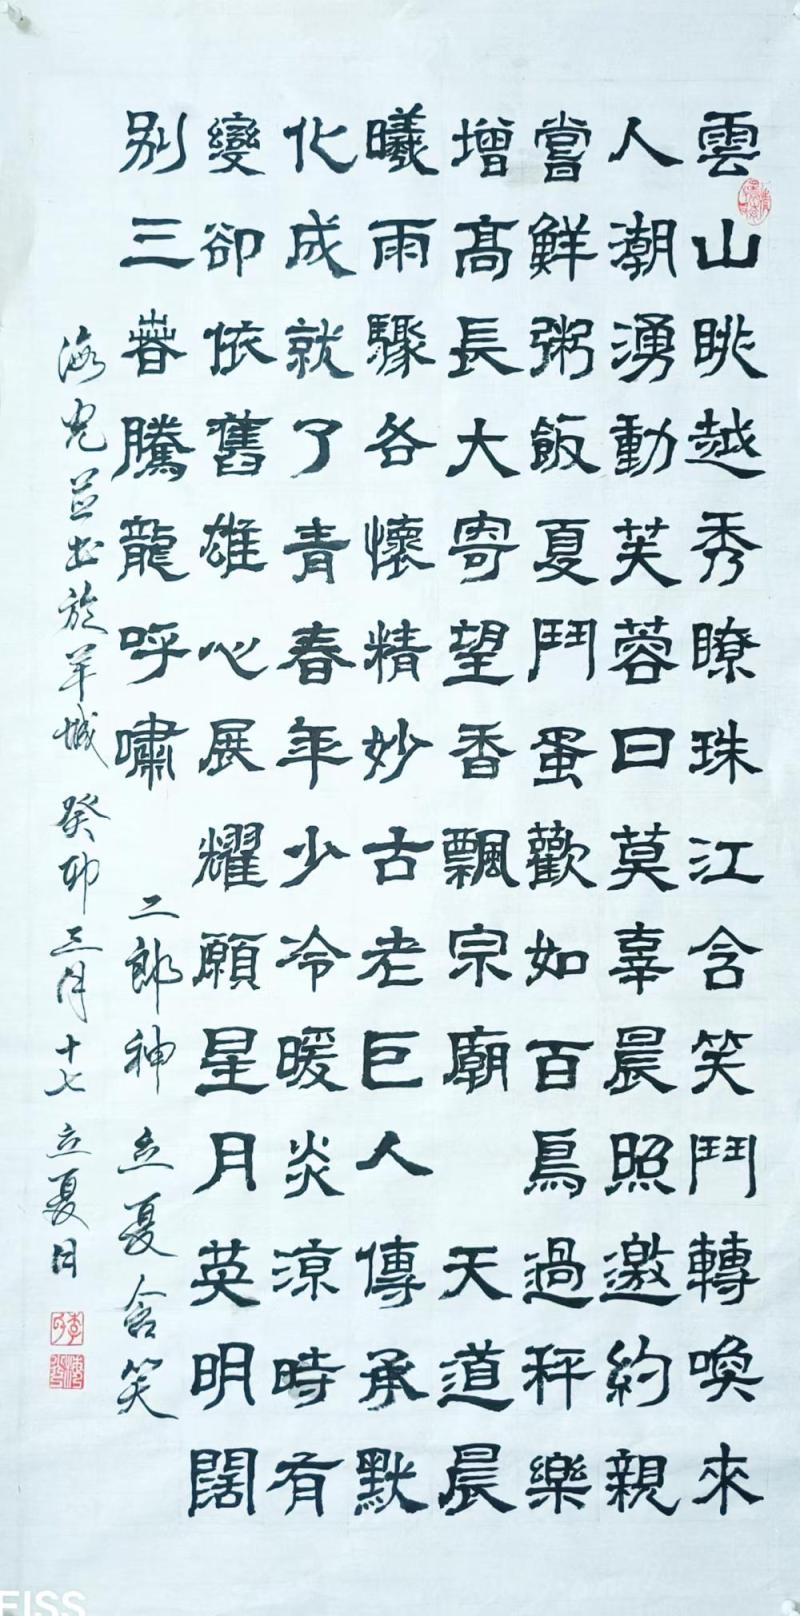 雲山眺越秀瞭珠江含笑鬥轉喚來
人潮湧動芙蓉曰莫辜晨照邀約親
嘗鮮粥飯夏鬥蛋歡如百鳥過秤樂
增高長大寄望香飄宗廟 天道晨
曦雨驟各懷精妙古老巨人傳承默
化成就了青春年少冷暖炎涼時有
變卻依舊雄心展耀願星月英明闊
別三春騰龍呼嘯
二郎神 立夏含笑
海光並书於羊城 癸卯三月十七 立夏日
EISS